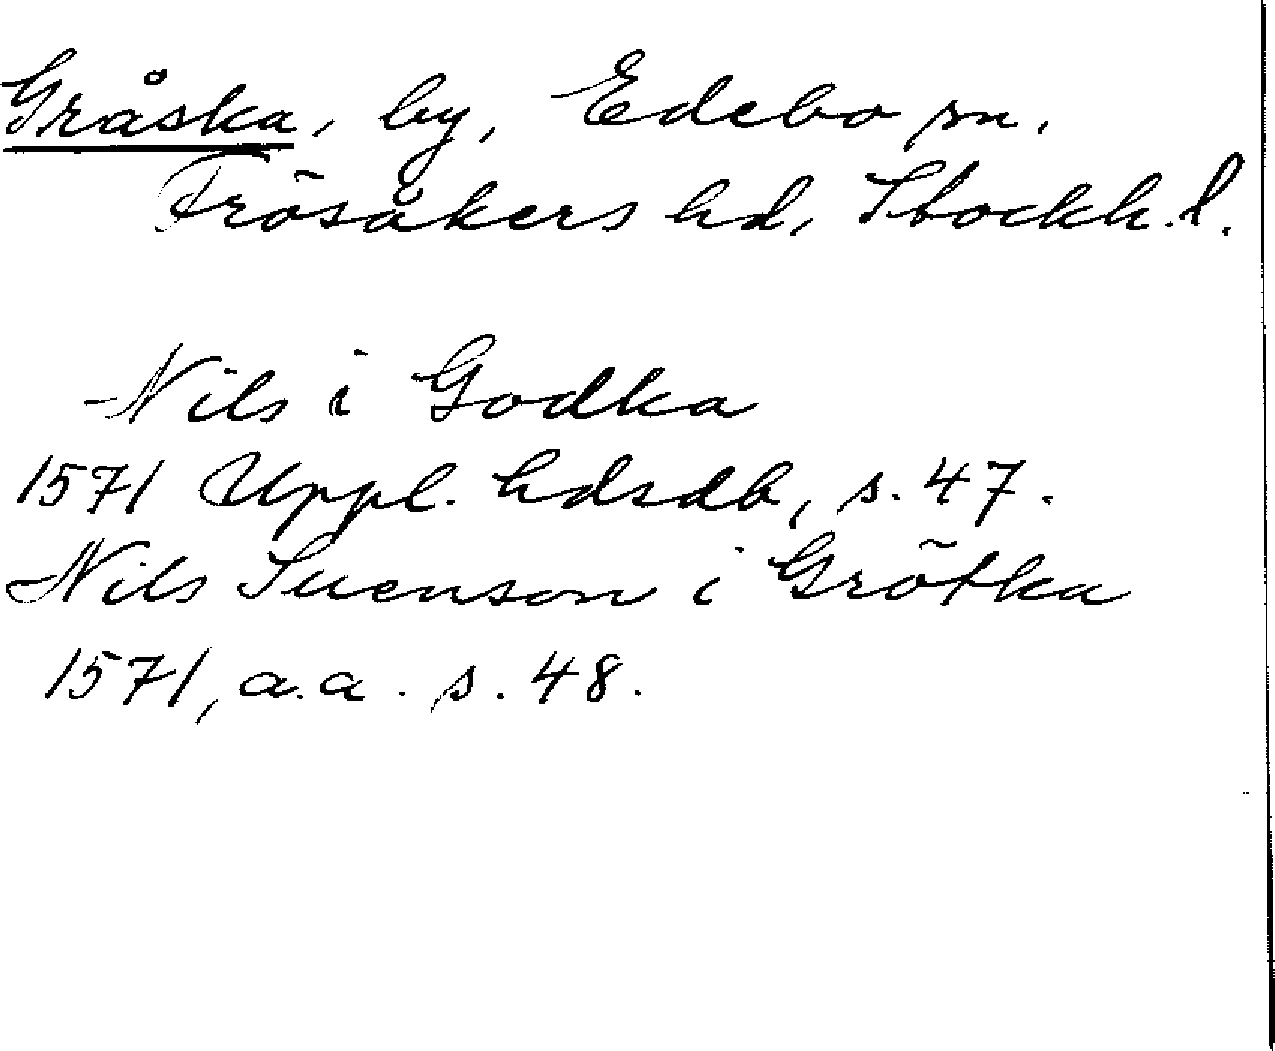 Gråska, by, Edebo sn.
Frösåkers hd, Stockh. l.
Nils i Godka
1571 Uppl. hdsdb, s. 47.
Nils Suenson i Grötka
1571, a.a. s. 48.